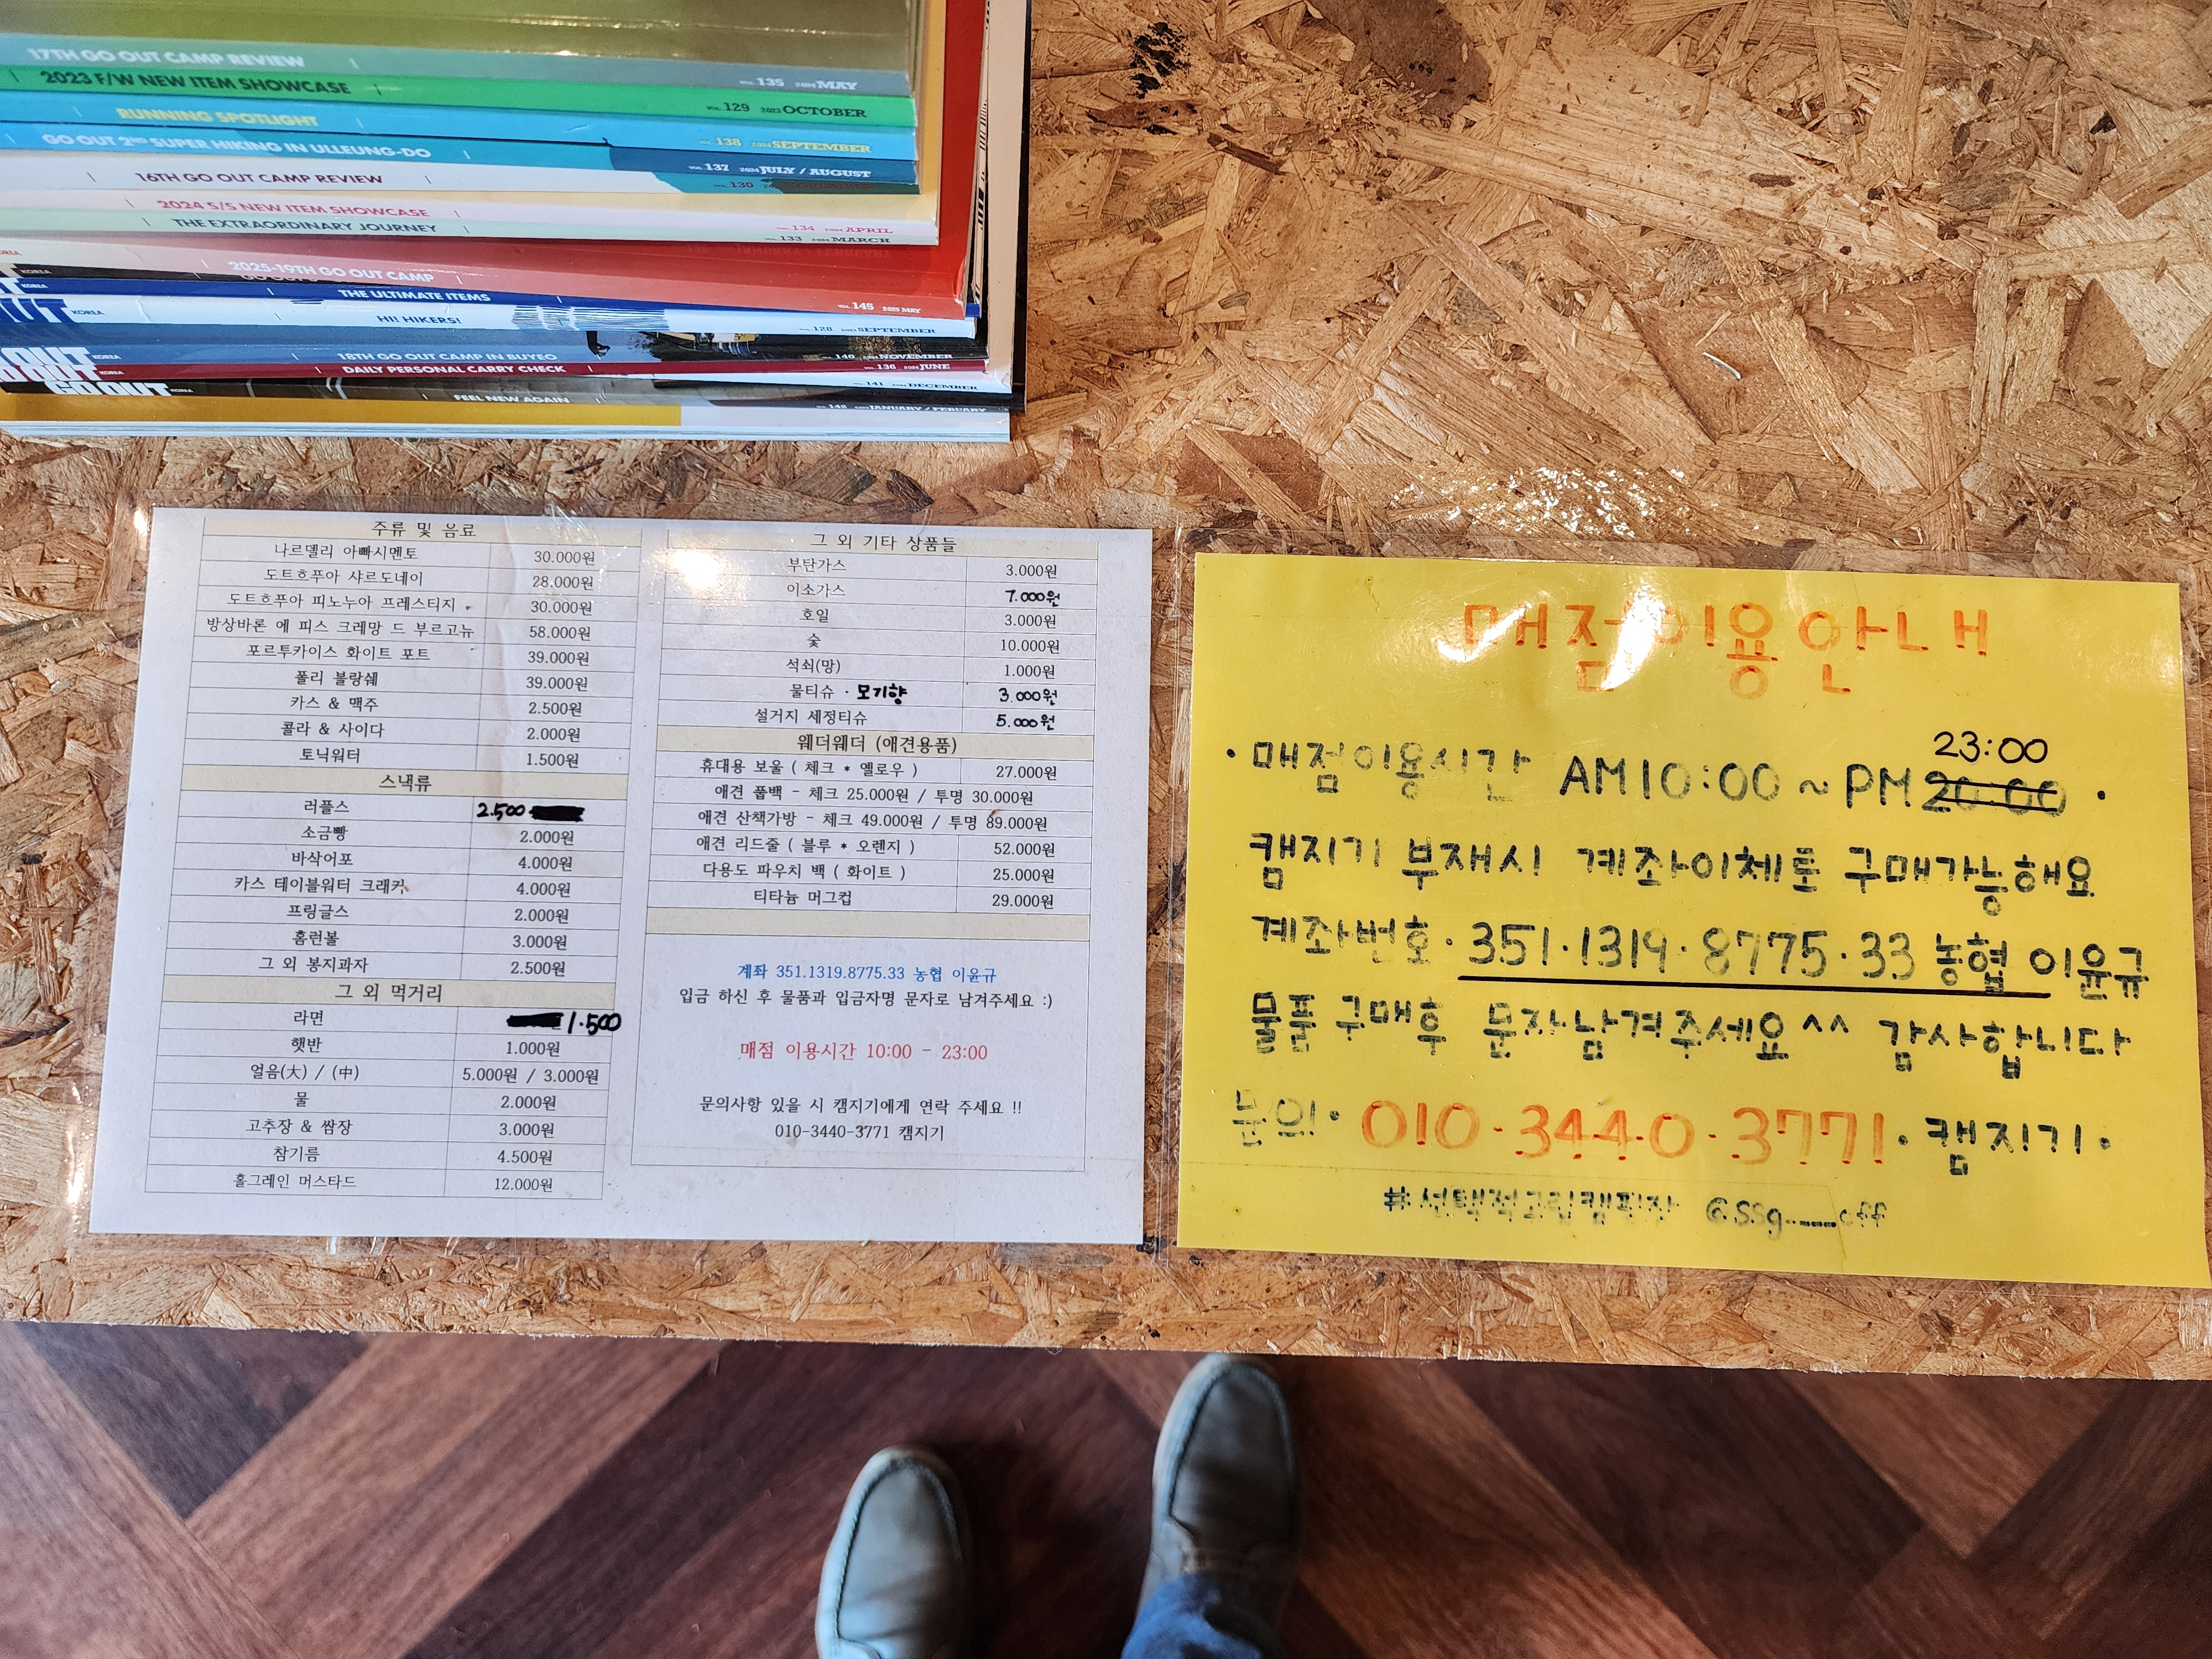 17TH GO OUT CAMP REVIEW VOL. 135 2024 MAY
2023 F/W NEW ITEM SHOWCASE VOL. 129 2023 OCTOBER
RUNNING SPOTLIGHT VOL. 138 2024 SEPTEMBER
GO OUT 2ND SUPER HIKING IN ULLEUNG-DO VOL. 137 2024 JULY / AUGUST
16TH GO OUT CAMP REVIEW VOL. 130
2024 S/S NEW ITEM SHOWCASE VOL. 134 2024 APRIL
THE EXTRAORDINARY JOURNEY VOL. 133 2024 MARCH
2025-19TH GO OUT CAMP VOL. 145 2025 MAY
KOREA THE ULTIMATE ITEMS
KOREA HI! HIKERS! VOL. 128 2023 SEPTEMBER
OUT KOREA 18TH GO OUT CAMP IN BUYEO VOL. 140 2024 NOVEMBER
KOREA DAILY PERSONAL CARRY CHECK VOL. 136 2024 JUNE
GO OUT KOREA 141 DECEMBER
FEEL NEW AGAIN JANUARY / FEBUARY
주류 및 음료
나르델리 아빠시멘토 30.000원
도트흐푸아 샤르도네이 28.000원
도트흐푸아 피노누아 프레스티지 30.000원
방상바론 에 피스 크레망 드 부르고뉴 58.000원
포르투카이스 화이트 포트 39.000원
폴리 블랑쉐 39.000원
카스 & 맥주 2.500원
콜라 & 사이다 2.000원
토닉워터 1.500원
스낵류
러플스 2.500
소금빵 2.000원
바삭어포 4.000원
카스 테이블워터 크래커 4.000원
프링글스 2.000원
홈런볼 3.000원
그 외 봉지과자 2.500원
그 외 먹거리
라면 1.500
햇반 1.000원
얼음(大) / (中) 5.000원 / 3.000원
물 2.000원
고추장 & 쌈장 3.000원
참기름 4.500원
홀그레인 머스타드 12.000원
그 외 기타 상품들
부탄가스 3.000원
이소가스 7.000원
호일 3.000원
숯 10.000원
석쇠(망) 1.000원
물티슈 · 모기향 3.000원
설거지 세정티슈 5.000원
웨더웨더 (애견용품)
휴대용 보울 ( 체크 * 옐로우 ) 27.000원
애견 풉백 - 체크 25.000원 / 투명 30.000원
애견 산책가방 - 체크 49.000원 / 투명 89.000원
애견 리드줄 ( 블루 * 오렌지 ) 52.000원
다용도 파우치 백 ( 화이트 ) 25.000원
티타늄 머그컵 29.000원
계좌 351.1319.8775.33 농협 이윤규
입금 하신 후 물품과 입금자명 문자로 남겨주세요 :)
매점 이용시간 10:00 - 23:00
문의사항 있을 시 캠지기에게 연락 주세요 !!
010-3440-3771 캠지기
매점이용안내
23:00
· 매점이용시간 AM10:00 ~ PM 20:00 ·
캠지기 부재시 계좌이체로 구매가능해요
계좌번호 · 351·1319·8775·33 농협 이윤규
물품 구매후 문자남겨주세요^^ 감사합니다
문의 · 010·3440·3771 · 캠지기 ·
#선택적고립캠핑장 @ssg____off